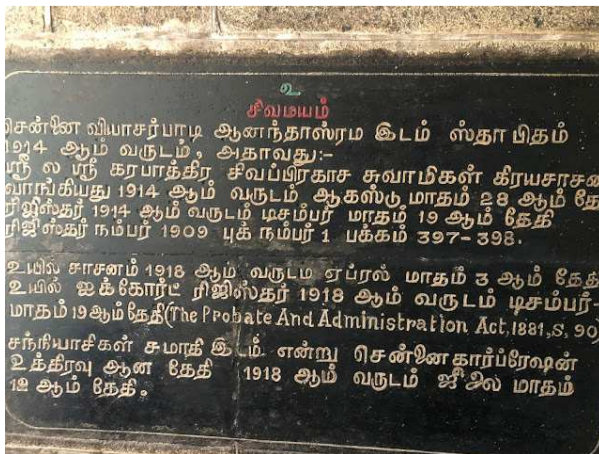 உ
சிவமயம்
சென்னை வியாசர்பாடி ஆனந்தாஸ்ரம இடம் ஸ்தாபிதம்
1914 ஆம் வருடம், அதாவது:-
ஸ்ரீ ல ஸ்ரீ கரபாத்திர சிவப்பிரகாச சுவாமிகள் கிரயசாசன
வாங்கியது 1914 ஆம் வருடம் ஆகஸ்டு மாதம் 28 ஆம் தே
ரிஜிஸ்தர் 1914 ஆம் வருடம் டிசம்பர் மாதம் 19 ஆம் தேதி
ரிஜிஸ்தர் நம்பர் 1909 புக் நம்பர் 1 பக்கம் 397-398.
உயில் சாசனம் 1918 ஆம் வருடம் ஏப்ரல் மாதம் 3 ஆம் தேதி
உயில் ஐக்கோர்ட் ரிஜிஸ்தர் 1918 ஆம் வருடம் டிசம்பர்-
மாதம் 19 ஆம் தேதி (The Probate And Administration Act, 1881, S, 90)
சந்நியாசிகள் சுமாதி இடம் என்று சென்னை கார்ப்ரேஷன்
உத்திரவு ஆன தேதி 1918 ஆம் வருடம் ஜூலை மாதம்
12 ஆம் தேதி.